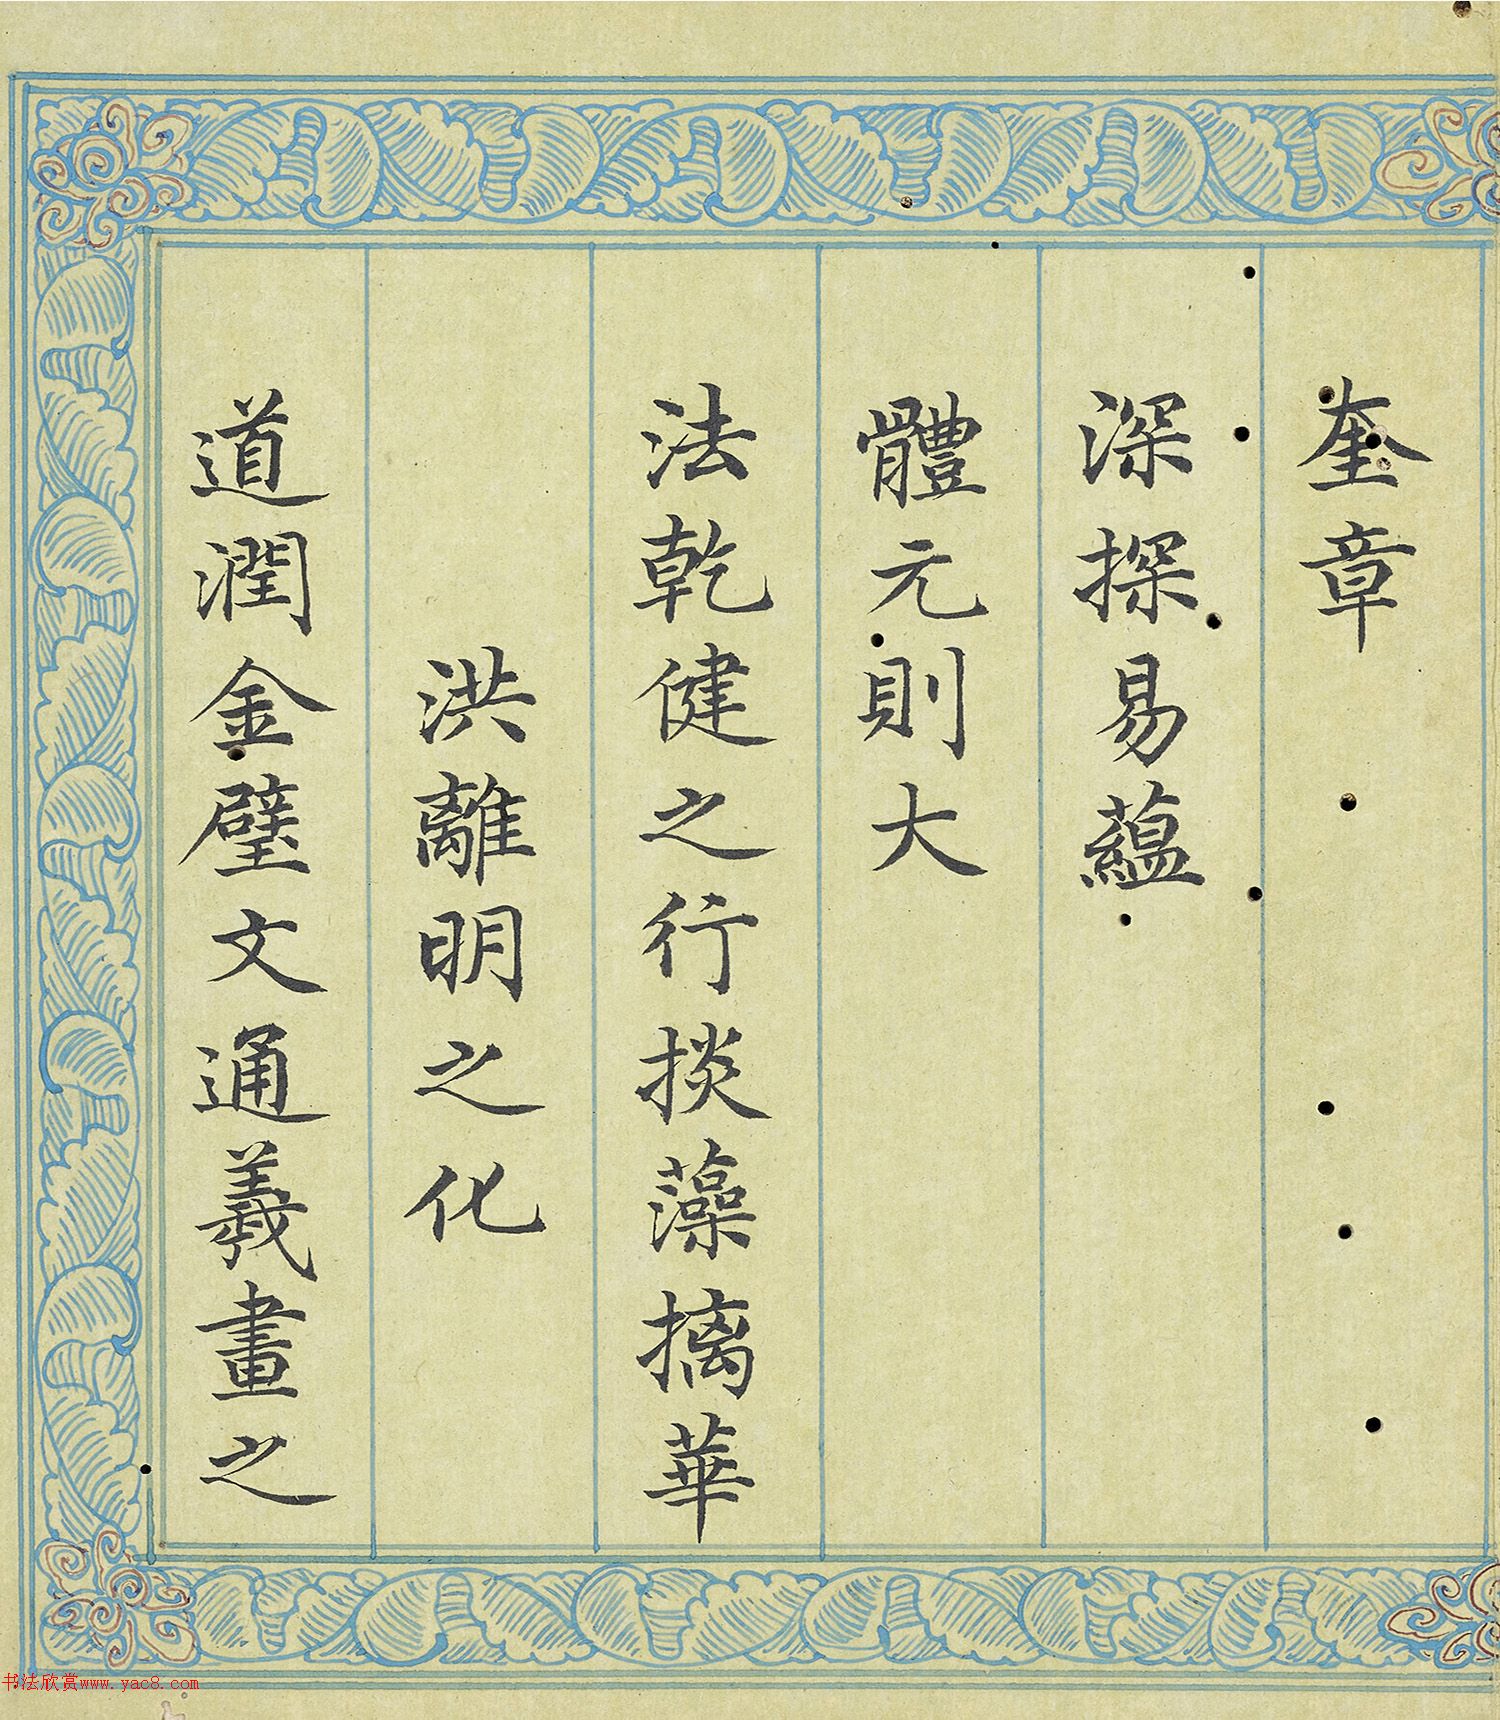 奎章
深探易蘊
體元則大
法乾健之行掞藻摛華
洪離明之化
道潤金璧文通羲畫之
书法欣赏www.yac8.com